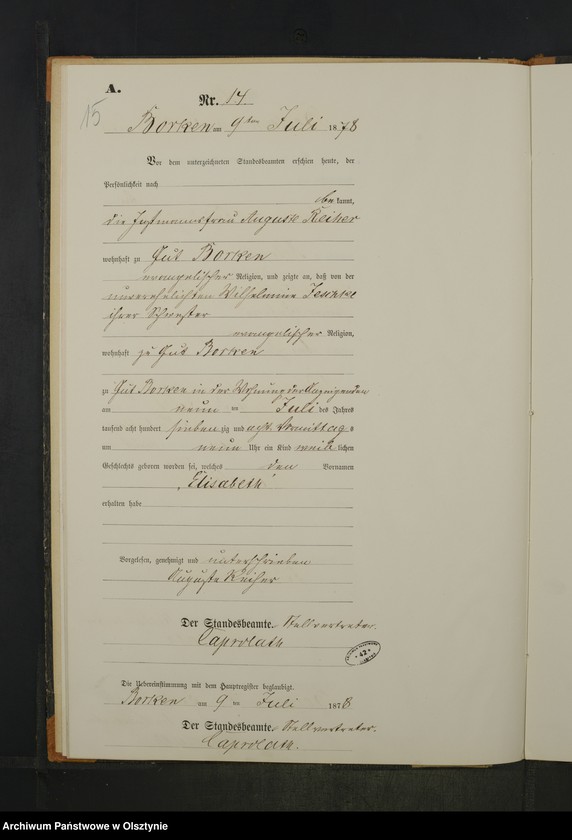 A.
15
Nr. 14.
Borken am 9ten Juli 1878
Vor dem unterzeichneten Standesbeamten erschien heute, der
Persönlichkeit nach
bekannt,
die Instmannsfrau Auguste Reiher
wohnhaft zu Gut Borken
evangelischer Religion, und zeigte an, daß von der
unverehelichten Wilhelmine Jeschke
ihrer Schwester
evangelischer Religion,
wohnhaft zu Gut Borken
zu Gut Borken in der Wohnung der Anzeigenden
am neun ten Juli des Jahres
tausend acht hundert siebenzig und acht Vormittags
um neun Uhr ein Kind weiblichen
Geschlechts geboren worden sei, welches den Vornamen
„Elisabeth“
erhalten habe
Vorgelesen, genehmigt und unterschrieben
Auguste Reiher
Der Standesbeamte. Stellvertreter.
Caprolath
42
Die Uebereinstimmung mit dem Hauptregister beglaubigt.
Borken am 9 ten Juli 1878
Der Standesbeamte. Stellvertreter.
Caprolath.
Archiwum Państwowe w Olsztynie